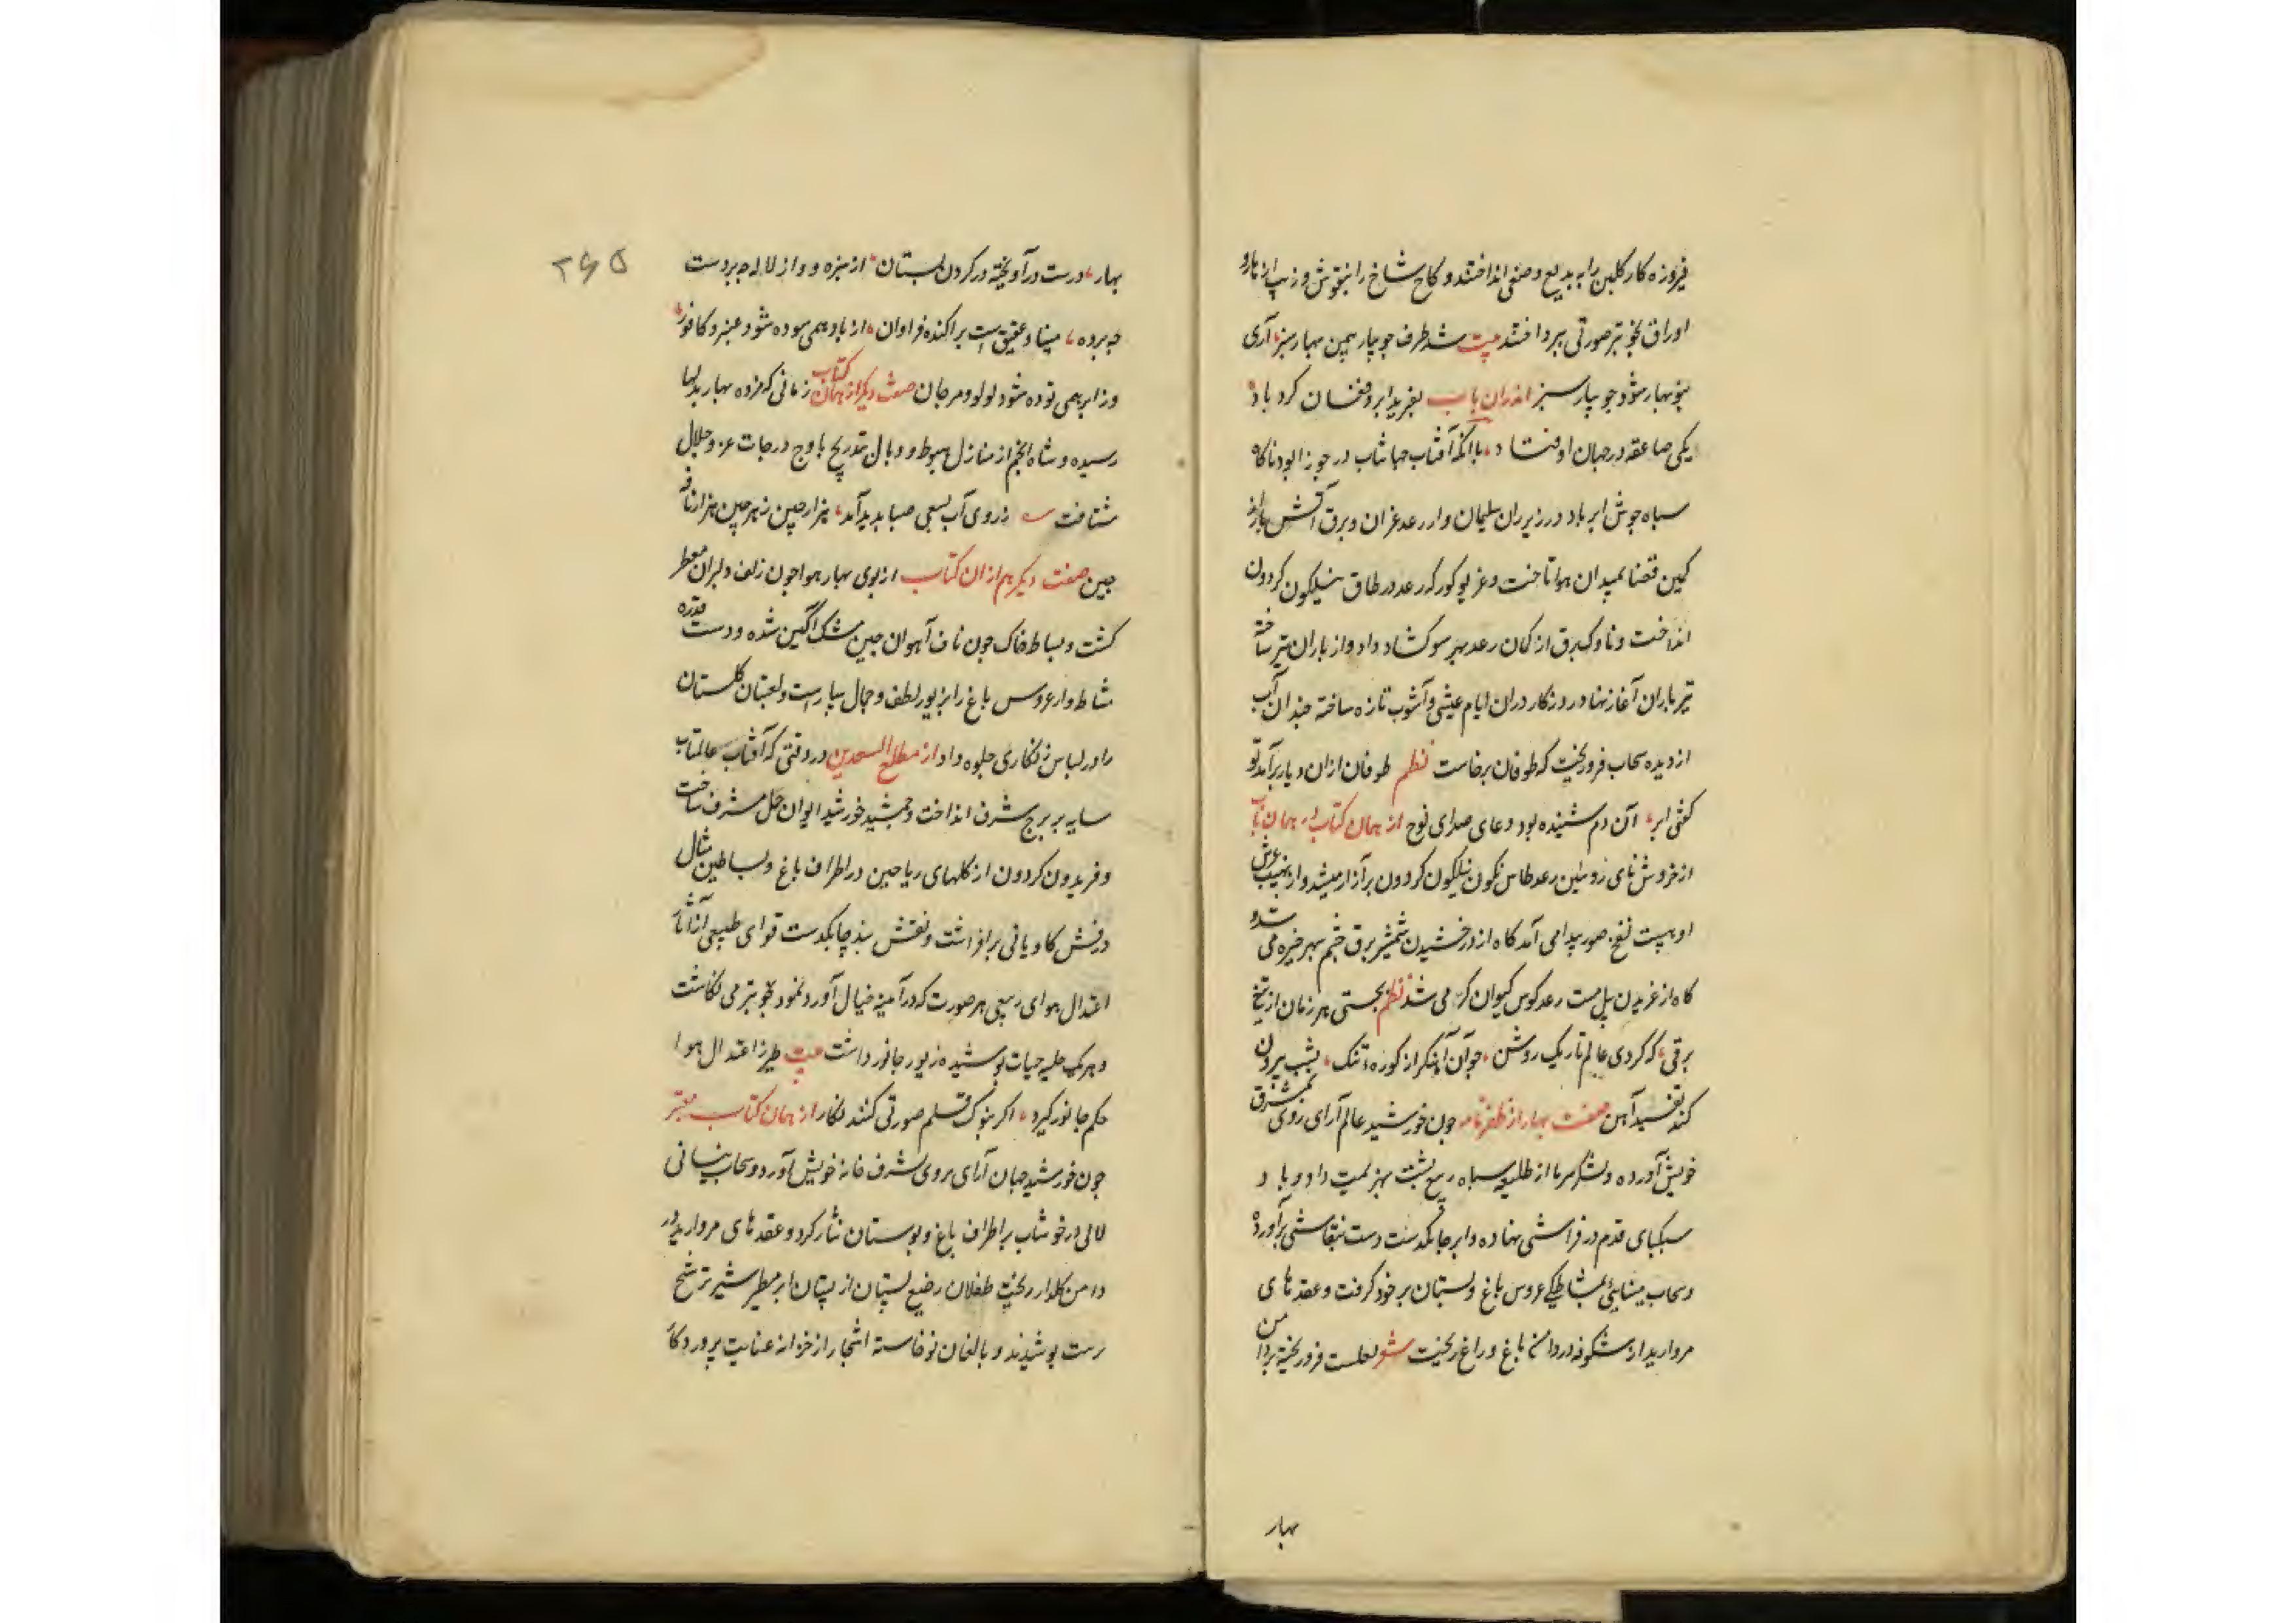 فیروزه کار کلبن را به بدیع وصفی انداختند و کاخ شاخ را بنقوش و زیب از بار و
اوراق بخوبتر صورتی بپرداختند بیت شد طرف جویبار بهمین بهار سبز، آری
بنوبهار شود جویبار سبز اندران باب بغرید ابر و فغان کرد باد
یکی صاعقه در جهان اوفتاد، با انکه آفتاب جهانتاب در جوزا بود ناکاه
سپاه جوش ابر باد در زیر ران سلیمان وار رعد غران و برق آتش بار از
کمین قضا بمیدان هوا تاخت و غریو کور که رعد در طاق نیلکون کردون
انداخت و ناوک برق از کمان رعد بهر سو کشاد داد و از باران تیر ساخته
تیرباران آغاز نهاد و روزکار دران ایام عیشی و آشوب تازه ساخته چندان آب
از دیده سحاب فرو ریخت که طوفان برخاست نظم طوفان ازان دیار برآمد تو
کفتی ابر، آن دم شنیده بود دعای صدای نوح از همان کتاب در همان باب
از خروش نای زوئین رعد طاس نکون نیلکون کردون برآزار میشد و از نهیب غرش
او هیبت نفخ صور پیدا می آمد کاه از درخشیدن شمشیر برق چشم سپهر خیره می شد و
کاه از غریدن پیل مست رعد کوس کیوان کر می شد نظم بجستی هر زمان از تیغ
برقی، که کردی عالم تاریک روشن، چو آن آهنکر از کوره تنک، بشب بیرون
کند تفسیده آهن صفت بهار از ظفرنامه چون خورشید عالم آرای روی بمشرق
خویش آورده و لشکر سرما از طلیعه سپاه ربیع پشت بهزیمت داد و باد
سبکپای قدم در فراشی نهاده و ابر چابکدست دست بنقاشی برآورده
و سحاب نیسانی بمشاطکی عروس باغ و بستان برخود کرفت و عقدهای
مروارید از شکوفه در دامن باغ و راغ ریخت شعر لعلست فرو ریخته بر دامن
بهار
۲۶۵
بهار، درست درآویخته در کردن بستان، از سبزه و و از لاله چه بردست
چه برده، مینا و عقیق است براکنده فراوان، از باد همی سوده شود عنبر و کافور،
وز ابر همی توده شود لولو و مرجان صفت دیکر از همان کتاب زمانی که مژده بهار بدلها
رسیده و شاه انجم از منازل هبوط و وبال بتدریج باوج درجات عز و جلال
شتافت زروی آب بسعی صبا پدید آمد، هزار چین زهر چین هزار نافه
چین صفت دیکر هم ازان کتاب از بوی بهار هوا چون زلف دلبران معطر
کشت و بساط خاک چون ناف آهوان چین مشک آکین شده و دست قدره
مشاطه وار عروس باغ را بزیور لطف و جمال بیاراست و لعبتان کلستان
را در لباس زنکاری جلوه داد از مطلع السعدین در وقتی که آفتاب عالمتاب
سایه بر برج شرف انداخت و جمشید خورشید ایوان حمل مشرف ساخت
و فریدون کردون از کلهای ریاحین در اطراف باغ و بساطین مثال
درفش کاویانی برافراشت و نقش بند چابکدست قوای طبیعی از آثار
اعتدال هوای ربیعی هر صورت که در آیینه خیال آورد بخوبتر می نکاشت
و هر یک حلیه حیات پوشیده زیور جانور داشت بیت طیر ز اعتدال هوا
حکم جانور کیرد، اکر بنوک قلم صورتی کنند نکار از همان کتاب معتبر
چون خورشید جهان آرای روی بشرف خانه خویش آورد و سحاب نیسانی
لالی در خوشاب بر اطراف باغ و بوستان نثار کرد و عقدهای مروارید در
دامن کلزار ریخت طفلان رضیع بستان از پستان ابر مطیر شیر ترشح
رست پوشیدند و بالغان نوخاسته اشجار از خزانه عنایت پروردکار